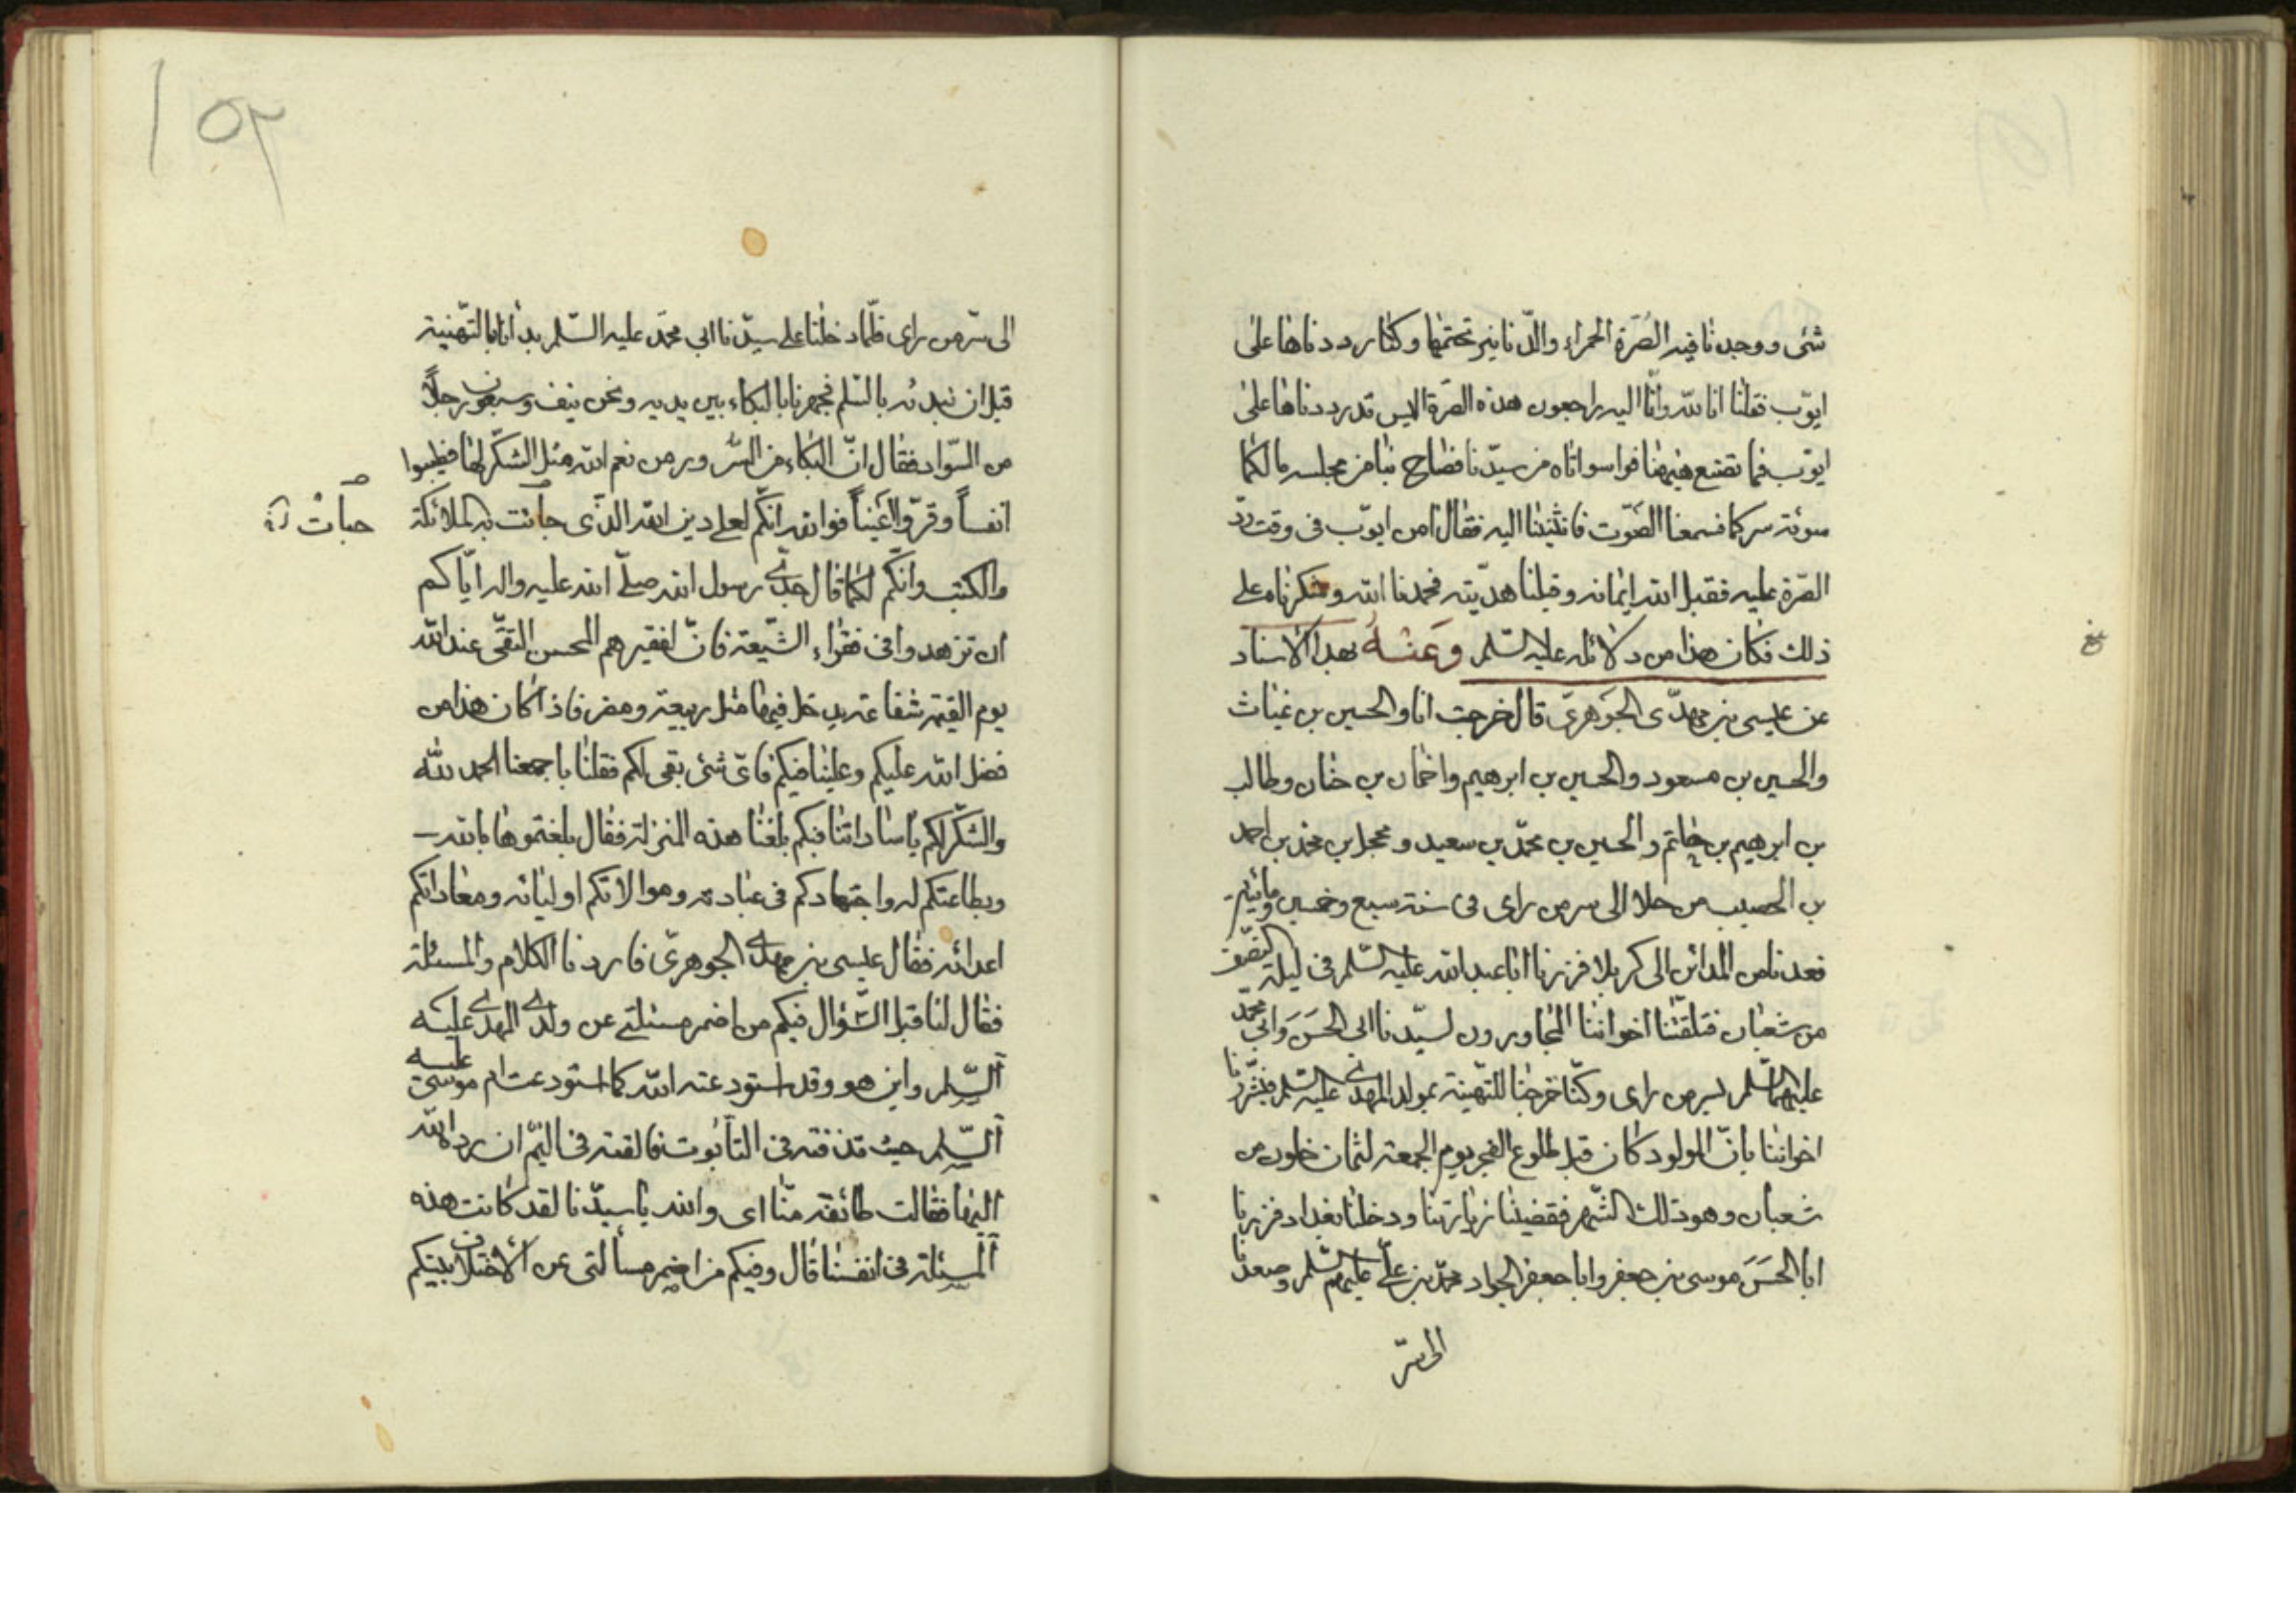 شئ ووجدنا فيه الصّرة الحمراء والدّنانير تحتمها وكنّا رددناها على
ايوّب فقلنا انا لله وانّا اليه راجعون هذه الصّرة اليس قد رددناها على
ايوّب فما نصنع هيهنا فواسواتاه من سيّدنا فصاح بنا من مجلسه مالكما
سوئة سركما فسمعنا الصّوت فانثنينا اليه فقال امن ايوّب فى وقت ردّ
الصّرة عليه فقبل الله ايمانه وقبلنا هدّيته فحمدنا الله وشكرناه على
ذلك فكان هذا من دلائله عليه السّلم وعنه بهذا الاسناد
عن عيسى بن مهدّى الجوهرىّ قال خرجت انا والحسين بن غياث
والحسين بن مسعود والحسين بن ابرهيم واحمان بن حنان وطالب
بن ابرهيم بن حاتم والحسين بن محمّد بن سعيد ومحجل بن محمّد بن احمد
بن الحصيب من حلا الى سر من راى فى سنة سبع وخمسين ومائتين
فعدنا من المدائن الى كربلا فزرنا ابا عبد الله عليه السّلم فى ليلة النصّف
من شعبان فتلقّتنا اخواننا المجاورون لسيّدنا ابى الحسن وابى محمّد
عليهما السّلم بسر من راى وكنّا خرجنا للتّهنية بمولد المهدى عليه السّلم فبشّرنا
اخواننا بانّ المولود كان قبل طلوع الفجر يوم الجمعة لثمان خلون من
شعبان وهو ذلك الشّهر فقضينا زيارتنا ودخلنا بغداد فزرنا
ابا الحسن موسى بن جعفر وابا جعفر الجواد محمّد بن علّى عليهم السّلم وصعدنا
الى سرّ
١٥٢
الى سرّ من راى فلمّا دخلنا على سيّدنا ابى محمّد عليه السّلم بدأنا بالتّهنية
قبل ان نبدئه بالسّلم فجهرنا بالبكاء بين يديه ونحن نيف وسبعون رجلاً
من السّواد فقال انّ البكاء من السّرور من نعم الله مثل الشكّر لها فطيبوا
انفساً وقرّوا اعيناً فوالله انكّم لعلى دين الله الذّى جائت به الملائكة
حبات
والكتب وانكّم لكما قال جدّى رسول الله صلّى الله عليه واله ايّاكم
ان تزهدوا فى فقراء الشّيعة فانّ لفقيرهم المحسن التقّى عند الله
يوم القيمة شفاعة يدخل فيها مثل ربيعة ومضر فاذا كان هذا من
فضل الله عليكم وعلينا فيكم فاىّ شئ بقى لكم فقلنا باجمعنا الحمد لله
والشكّر لكم يا ساداتنا فبكم بلغنا هذه المنزلة فقال بلغتموها بالله
وبطاعتكم له واجتهادكم فى عبادته وموالاتكم اوليائه ومعاداتكم
اعدائه فقال عيسى بن مهدى الجوهرىّ فاردنا الكلام والمسئلة
فقال لنا قبل السّؤال فيكم من اضمر مسئلتى عن ولدى المهدى عليه
السّلم واين هو وقد استودعته الله كما استودعت ام موسى عليه
السّلم حيث قذفته فى التابوت فالقته فى اليمّ ان رده الله
اليها فقالت طائفة منّا اى والله يا سيدّنا لقد كانت هذه
المسئلة فى انفسنا قال وفيكم من اضمر مسألتى عن الاختلاف بينكم